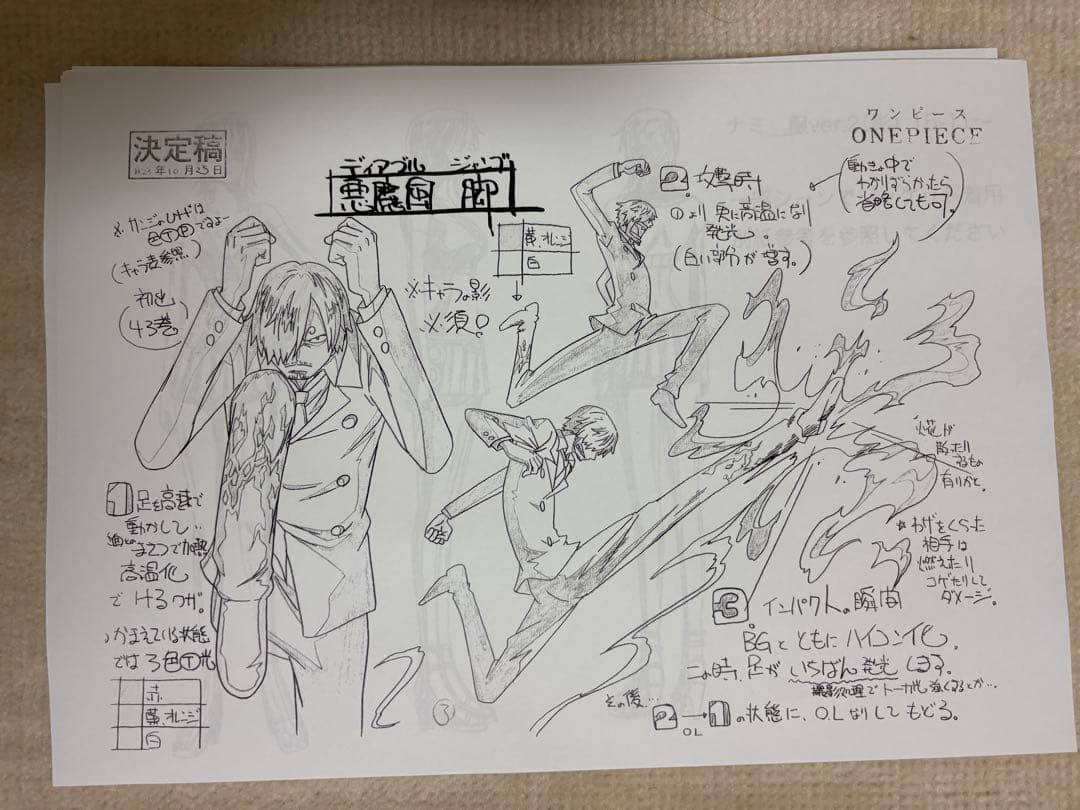 決定稿
年10月25日
ワンピース
ONEPIECE
ディアブル ジャンブ
悪魔風 脚
※サンジのヒゲは
色Ⓣ
(キャラ表参照)
初出
43巻
黄、オレンジ
白
※キャラ影
必須!
2 攻撃時
①より更に高温になり
発光。
(白い部分が増す。)
動きの中で
わかりづらかったら
省略しても可。
1 足を高速で
動かして..
まさつで加熱
高温化
でけるワザ。
かまえている状態
では3色Ⓣ光
赤
黄、オレンジ
白
炎が
散ったり
するもの
有りかと。
☆ワザをくらった
相手は
燃えたり
コゲたりして
ダメージ。
3 インパクトの瞬間
BGとともにハイコン化。
この時、足がいちばん発光します。
撮影処理でトーカ光 強くするとか…
その後…
2→1の状態に、O.Lなりしてもどる。
OL
3